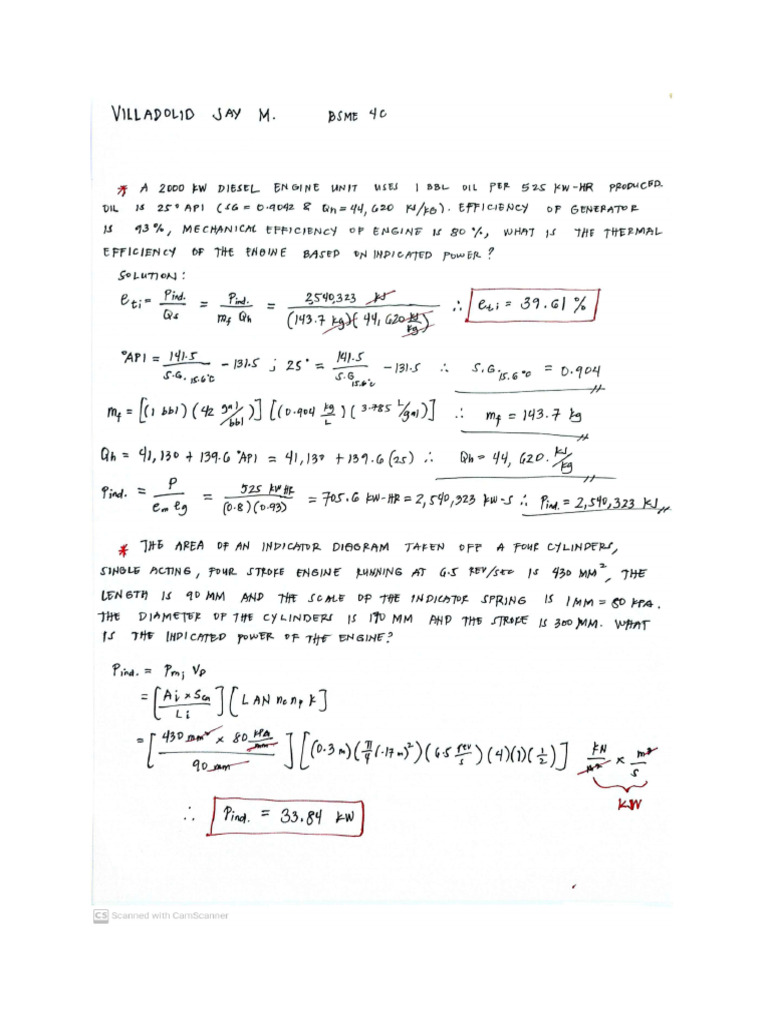 VILLADOLID JAY M. BSME 4C
* A 2000 KW DIESEL ENGINE UNIT USES 1 BBL OIL PER 525 KW-HR PRODUCED.
OIL IS 25° API (SG = 0.9042 & Qh = 44,620 KJ/KG). EFFICIENCY OF GENERATOR
IS 93%, MECHANICAL EFFICIENCY OF ENGINE IS 80%, WHAT IS THE THERMAL
EFFICIENCY OF THE ENGINE BASED ON INDICATED POWER?
SOLUTION:
eti = Pind./Qs = Pind./mf Qh = 2,540,323 KJ/(143.7 kg)(44,620 KJ/kg) ∴ eti = 39.61 %
°API = 141.5/S.G. 15.6°C - 131.5 ; 25° = 141.5/S.G 15.6°C - 131.5 ∴ S.G. 15.6°C = 0.904
mf = [(1 bbl)(42 gal/bbl)][(0.904 kg/L)(3.785 L/gal)] ∴ mf = 143.7 kg
Qh = 41,130 + 139.6 °API = 41,130 + 139.6 (25) ∴ Qh = 44,620. KJ/kg
Pind. = P/em eg = 525 KW HR/(0.8)(0.93) = 705.6 KW-HR = 2,540,323 KW-S ∴ Pind. = 2,540,323 KJ
* THE AREA OF AN INDICATOR DIAGRAM TAKEN OFF A FOUR CYLINDERS,
SINGLE ACTING, FOUR STROKE ENGINE RUNNING AT 6.5 REV/SEC IS 430 MM², THE
LENGTH IS 90 MM AND THE SCALE OF THE INDICATOR SPRING IS 1 MM = 80 KPA.
THE DIAMETER OF THE CYLINDERS IS 170 MM AND THE STROKE IS 300 MM. WHAT
IS THE INDICATED POWER OF THE ENGINE?
Pind. = Pmi VD
= [Ai x Scn/Li][LAN nc np K]
= [430 mm² x 80 KPa/mm/90 mm][(0.3 m)(π/4 (.17 m)²)(6.5 rev/s)(4)(1)(1/2)] KN/m² x m³/s
KW
∴ Pind. = 33.84 KW
CS Scanned with CamScanner